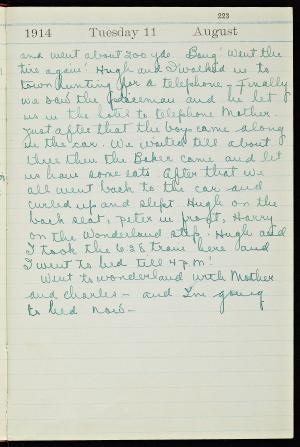 223
1914 Tuesday 11 August
and went about 200 yds. Bang! Went the
tire again! Hugh and I walked in to
town hunting for a telephone – Finally
we saw the policeman and he let
us in the hotel to telephone Mother.
Just after that the boys came along
in the car. We waited till about
three then the Baker came and let
us have some eats. After that we
all went back to the car and
curled up and slept Hugh on the
back seat, peter in front, Harry
on the Wonderland step! Hugh and
I took the 6:38 train here and
I went to bed till 4 p.m!
Went to wonderland with Mother
and Charles – and I'm going
to bed now –